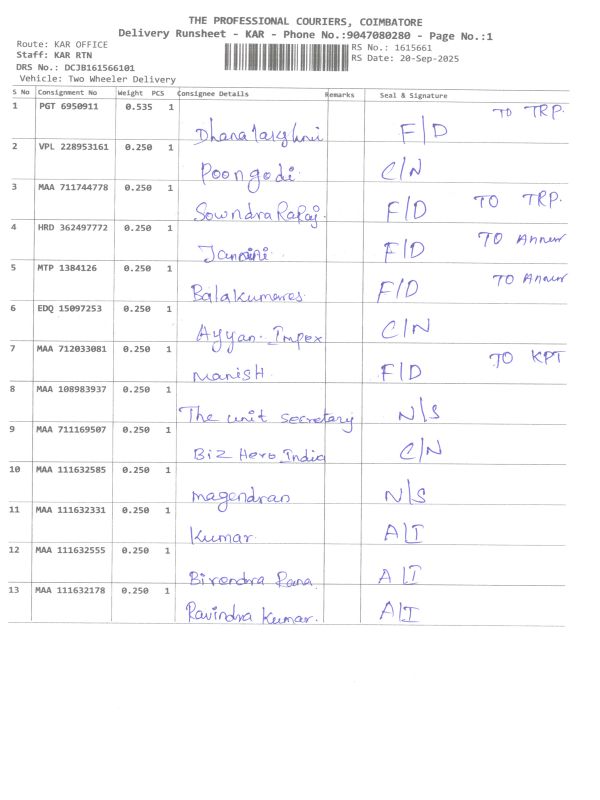 THE PROFESSIONAL COURIERS, COIMBATORE
Delivery Runsheet - KAR - Phone No.:9047080280 - Page No.:1
Route: KAR OFFICE RS No.: 1615661
Staff: KAR RTN RS Date: 20-Sep-2025
DRS No.: DCJB161566101
Vehicle: Two Wheeler Delivery
S No Consignment No Weight PCS Consignee Details Remarks Seal & Signature
1 PGT 6950911 0.535 1 TO TRP.
Dhanalakshmi F/D
2 VPL 228953161 0.250 1
Poongodi C/N
3 MAA 711744778 0.250 1 TO TRP.
Sowndra F/D
4 HRD 362497772 0.250 1 TO
F/D
5 MTP 1384126 0.250 1 TO
Balakumares F/D
6 EDQ 15097253 0.250 1
Ayyan. Impex C/N
7 MAA 712033081 0.250 1 TO KPT
Manish. F/D
8 MAA 108983937 0.250 1
The unit secretary N/S
9 MAA 711169507 0.250 1
Biz Hero India C/N
10 MAA 111632585 0.250 1
Magendran N/S
11 MAA 111632331 0.250 1
Kumar. A/I
12 MAA 111632555 0.250 1
Birendra Rana. A/I
13 MAA 111632178 0.250 1
Ravindra Kumar. A/I